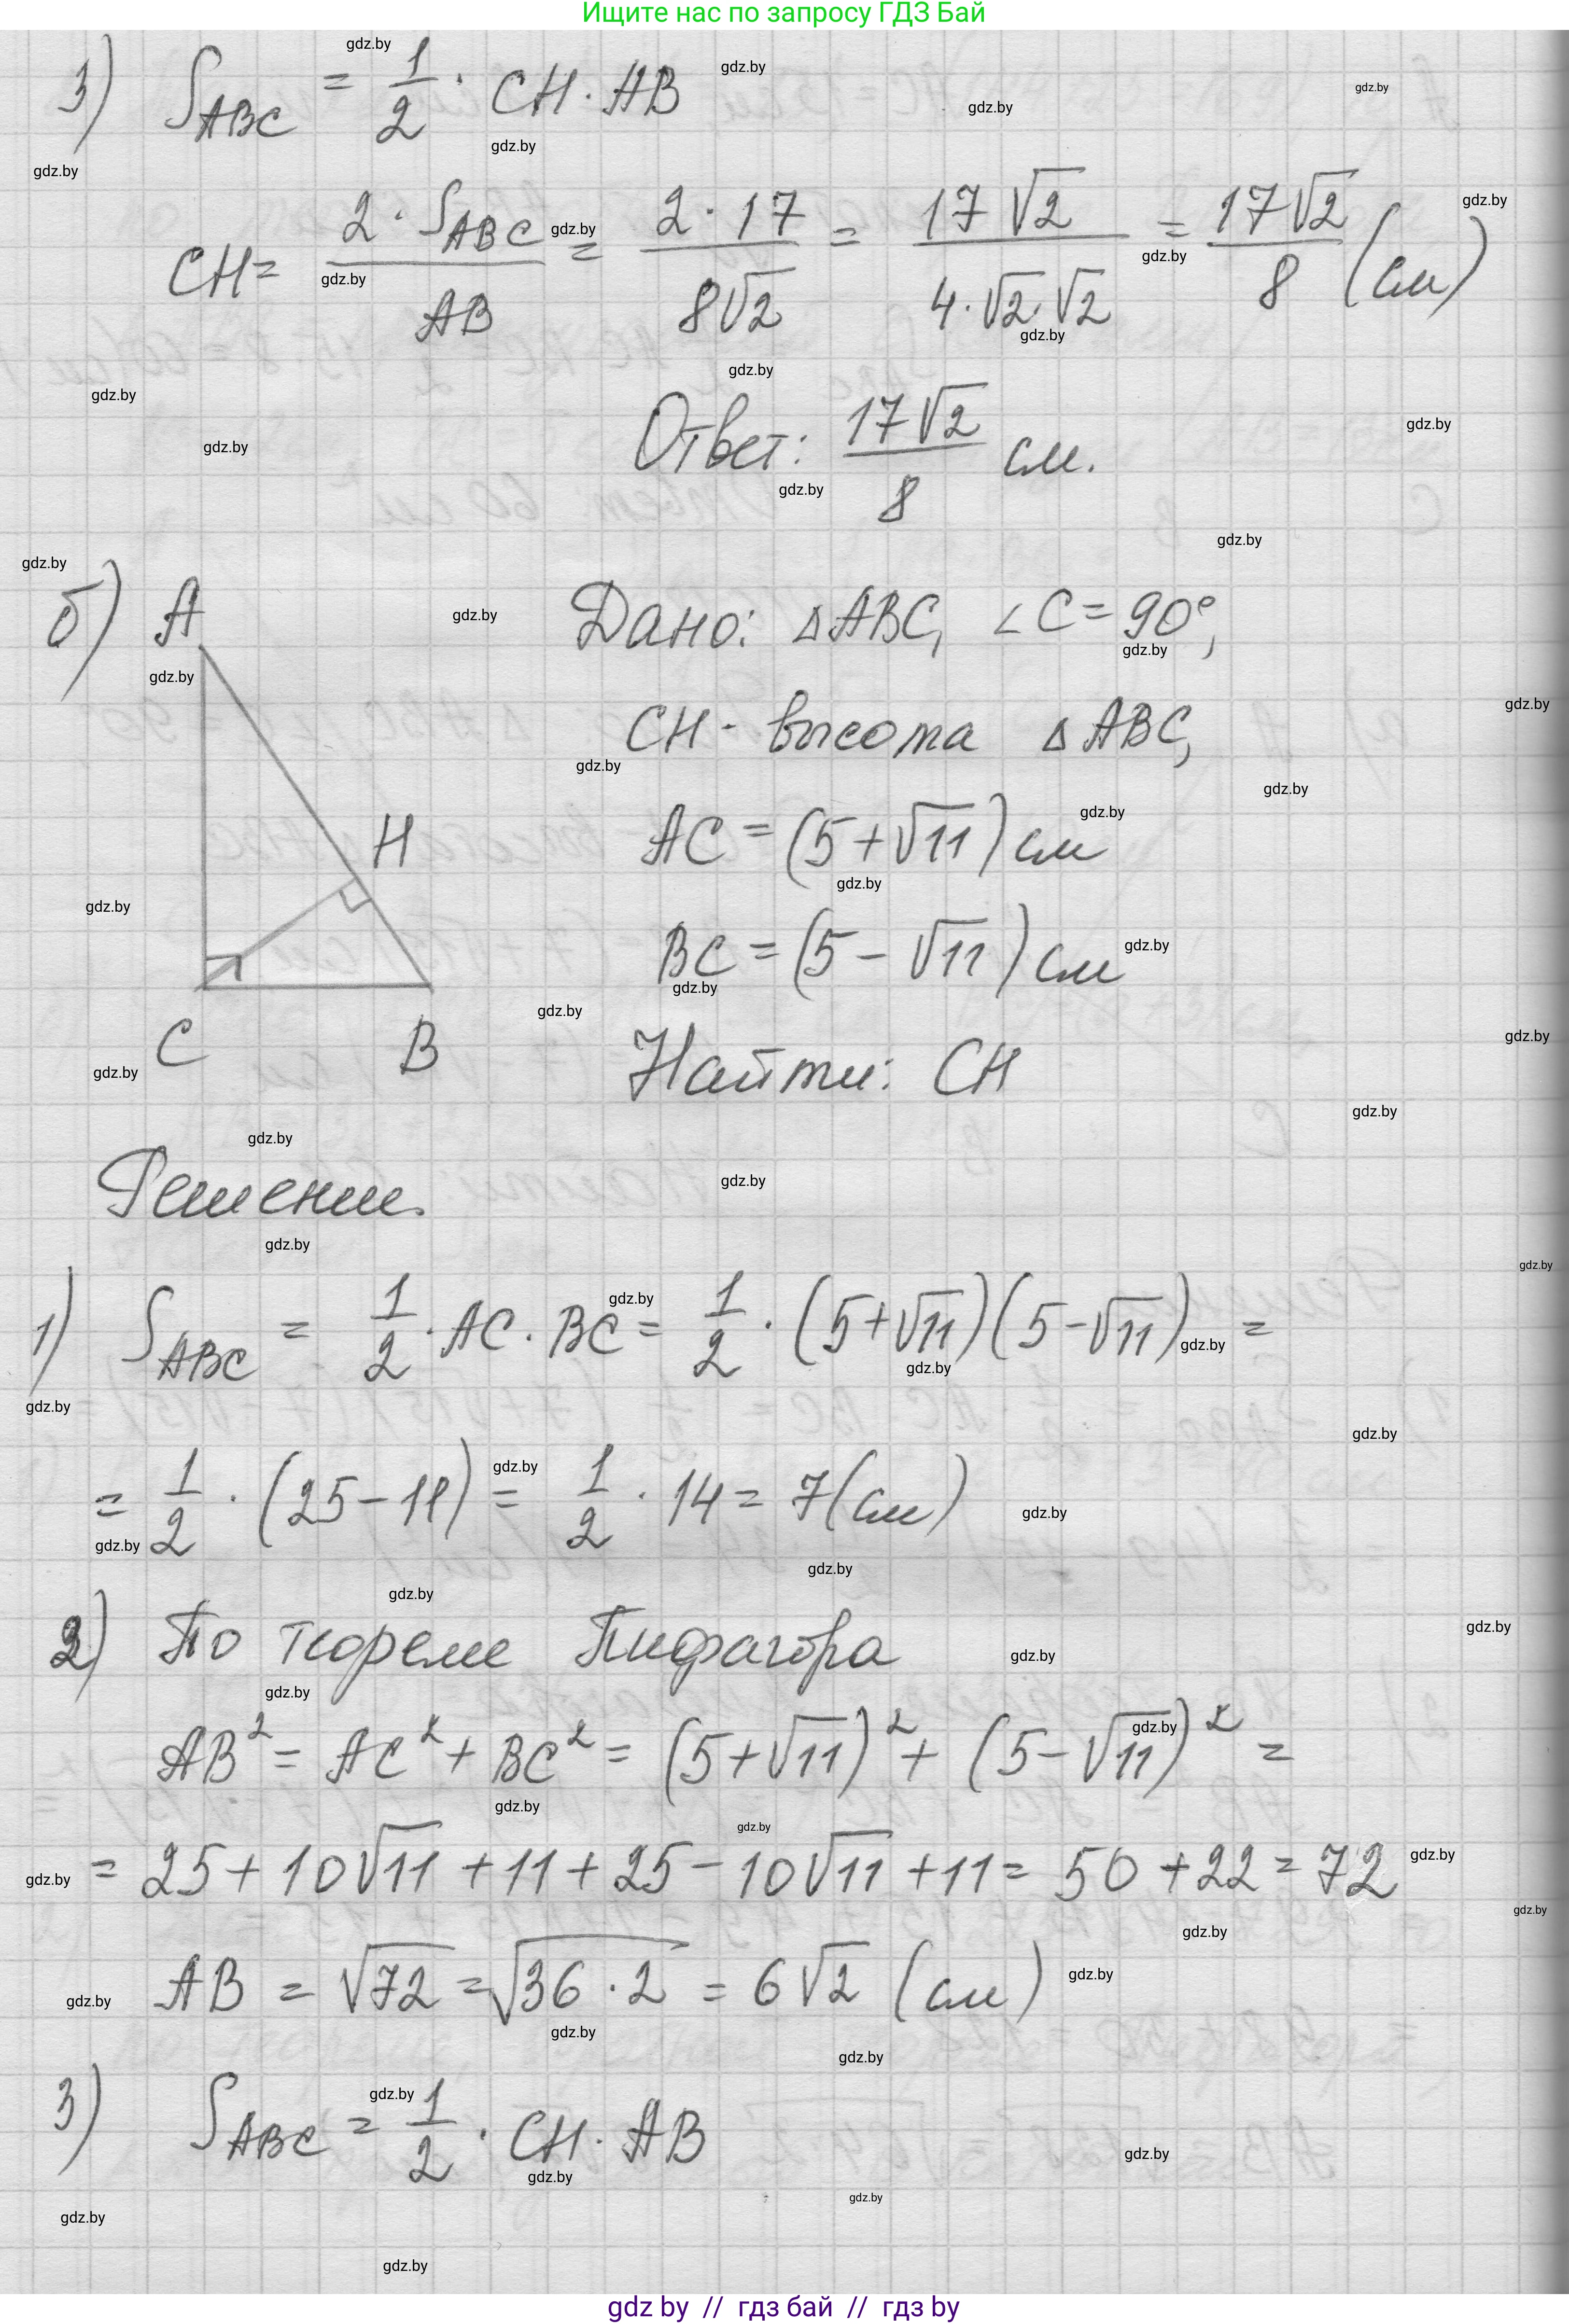 Ищите нас по запросу ГДЗ Бай
3) S_ABC = 1/2 · CH · AB
CH = 2 · S_ABC / AB = 2 · 17 / 8√2 = 17√2 / 4 · √2 · √2 = 17√2 / 8 (см)
Ответ: 17√2 / 8 см.
б) A
H
C B
Дано: △ABC, ∠C = 90°,
CH - высота △ABC,
AC = (5 + √11) см
BC = (5 - √11) см
Найти: CH
Решение.
1) S_ABC = 1/2 · AC · BC = 1/2 · (5 + √11)(5 - √11) =
= 1/2 · (25 - 11) = 1/2 · 14 = 7 (см)
2) По теореме Пифагора
AB² = AC² + BC² = (5 + √11)² + (5 - √11)² =
= 25 + 10√11 + 11 + 25 - 10√11 + 11 = 50 + 22 = 72
AB = √72 = √36 · 2 = 6√2 (см)
3) S_ABC = 1/2 · CH · AB
gdz by // гдз бай // гдз by